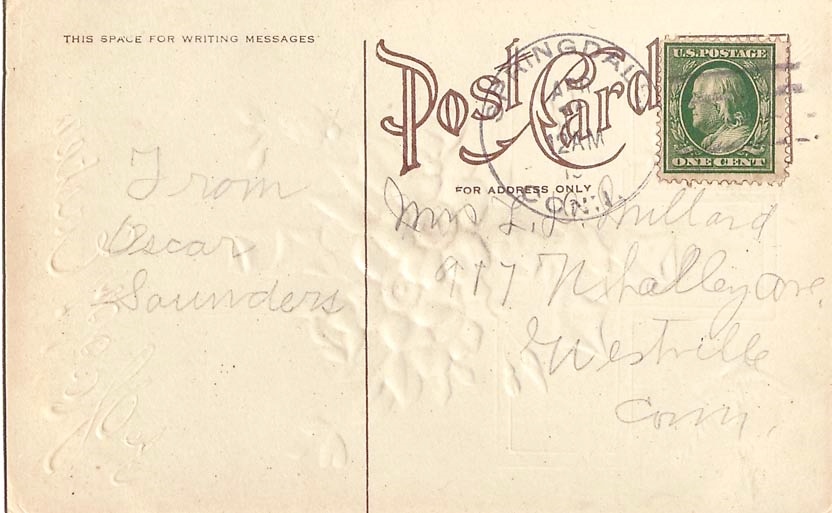 THIS SPACE FOR WRITING MESSAGES
Post Card
FOR ADDRESS ONLY
SPRINGDALE
12AM
CONN.
U.S. POSTAGE
ONE CENT
From
Oscar
Saunders
Mrs L. L. Millard
917 Whalley Ave.
Westville
Conn.